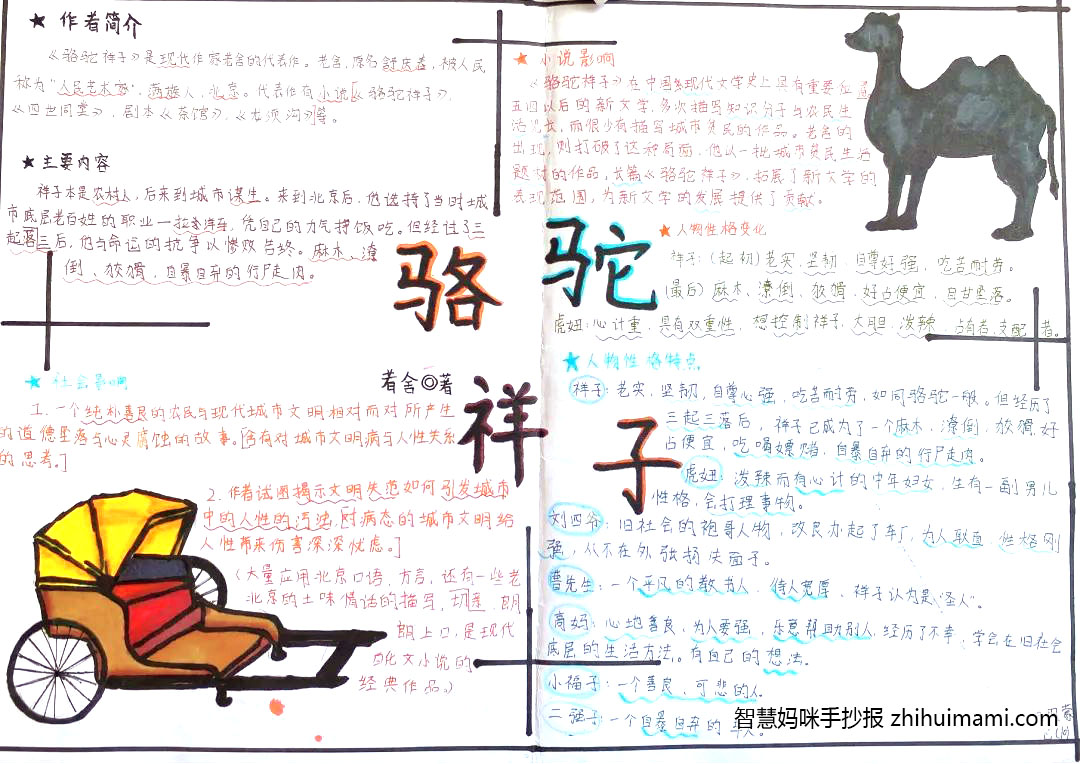 ★ 作者简介
《骆驼祥子》是现代作家老舍的代表作。老舍,原名舒庆春,被人民
称为"人民艺术家",满族人,北京。代表作有小说《骆驼祥子》、
《四世同堂》,剧本《茶馆》、《龙须沟》等。
★ 主要内容
祥子本是农村人,后来到城市谋生。来到北京后,他选择了当时城
市底层老百姓的职业—拉洋车,凭自己的力气挣饭吃。但经过了三
起落三后,他与命运的抗争以惨败告终。麻木、潦
倒、狡猾、自暴自弃的行尸走肉。
★ 社会影响
1. 一个纯朴善良的农民与现代城市文明相对而对所产生
的道德堕落与心灵腐蚀的故事。[含有对城市文明病与人性关系
的思考。]
2. 作者试图揭示文明失范如何引发城市
中的人性的污浊,[对病态的城市文明给
人性带来伤害深深忧虑。]
(大量应用北京口语、方言,还有一些老
北京的土味情话的描写,朗
朗上口,是现代
白化文小说的
经典作品。)
骆 驼
祥 子
老舍◎著
★ 小说影响
《骆驼祥子》在中国现代文学史上具有重要位置
五四以后的新文学,多次描写知识分子与农民生
活见长,而很少有描写城市贫民的作品。老舍的
出现,则打破了这种局面,他以一批城市贫民生活
题材的作品,长篇《骆驼祥子》,拓展了新文学的
表现范围,为新文学的发展提供了贡献。
★ 人物性格变化
祥子:(起初)老实、坚韧、自尊好强,吃苦耐劳。
(最后)麻木、潦倒、狡猾、好占便宜、自甘堕落。
虎妞:心计重,具有双重性,想控制祥子,大胆、泼辣、占有者,支配者。
★ 人物性格特点
祥子:老实、坚韧、自尊心强,吃苦耐劳,如同骆驼一般。但经历了
三起三落后,祥子已成为了一个麻木、潦倒、狡猾、好
占便宜、吃喝嫖赌、自暴自弃的行尸走肉。
虎妞:泼辣而有心计的中年妇女,生有一副男儿
性格,会打理事物。
刘四爷:旧社会的袍哥人物,改良办起了车厂,为人耿直,性格刚
强,从不在外张扬失面子。
曹先生:一个平凡的教书人,待人宽厚,祥子认为是"圣人"。
高妈:心地善良,为人要强,乐意帮助别人,经历了不幸,学会在旧社会
底层的生活方法。有自己的想法。
小福子:一个善良、可悲的人。
二强子:一个自暴自弃的车人。
智慧妈咪手抄报 zhihuimami.com